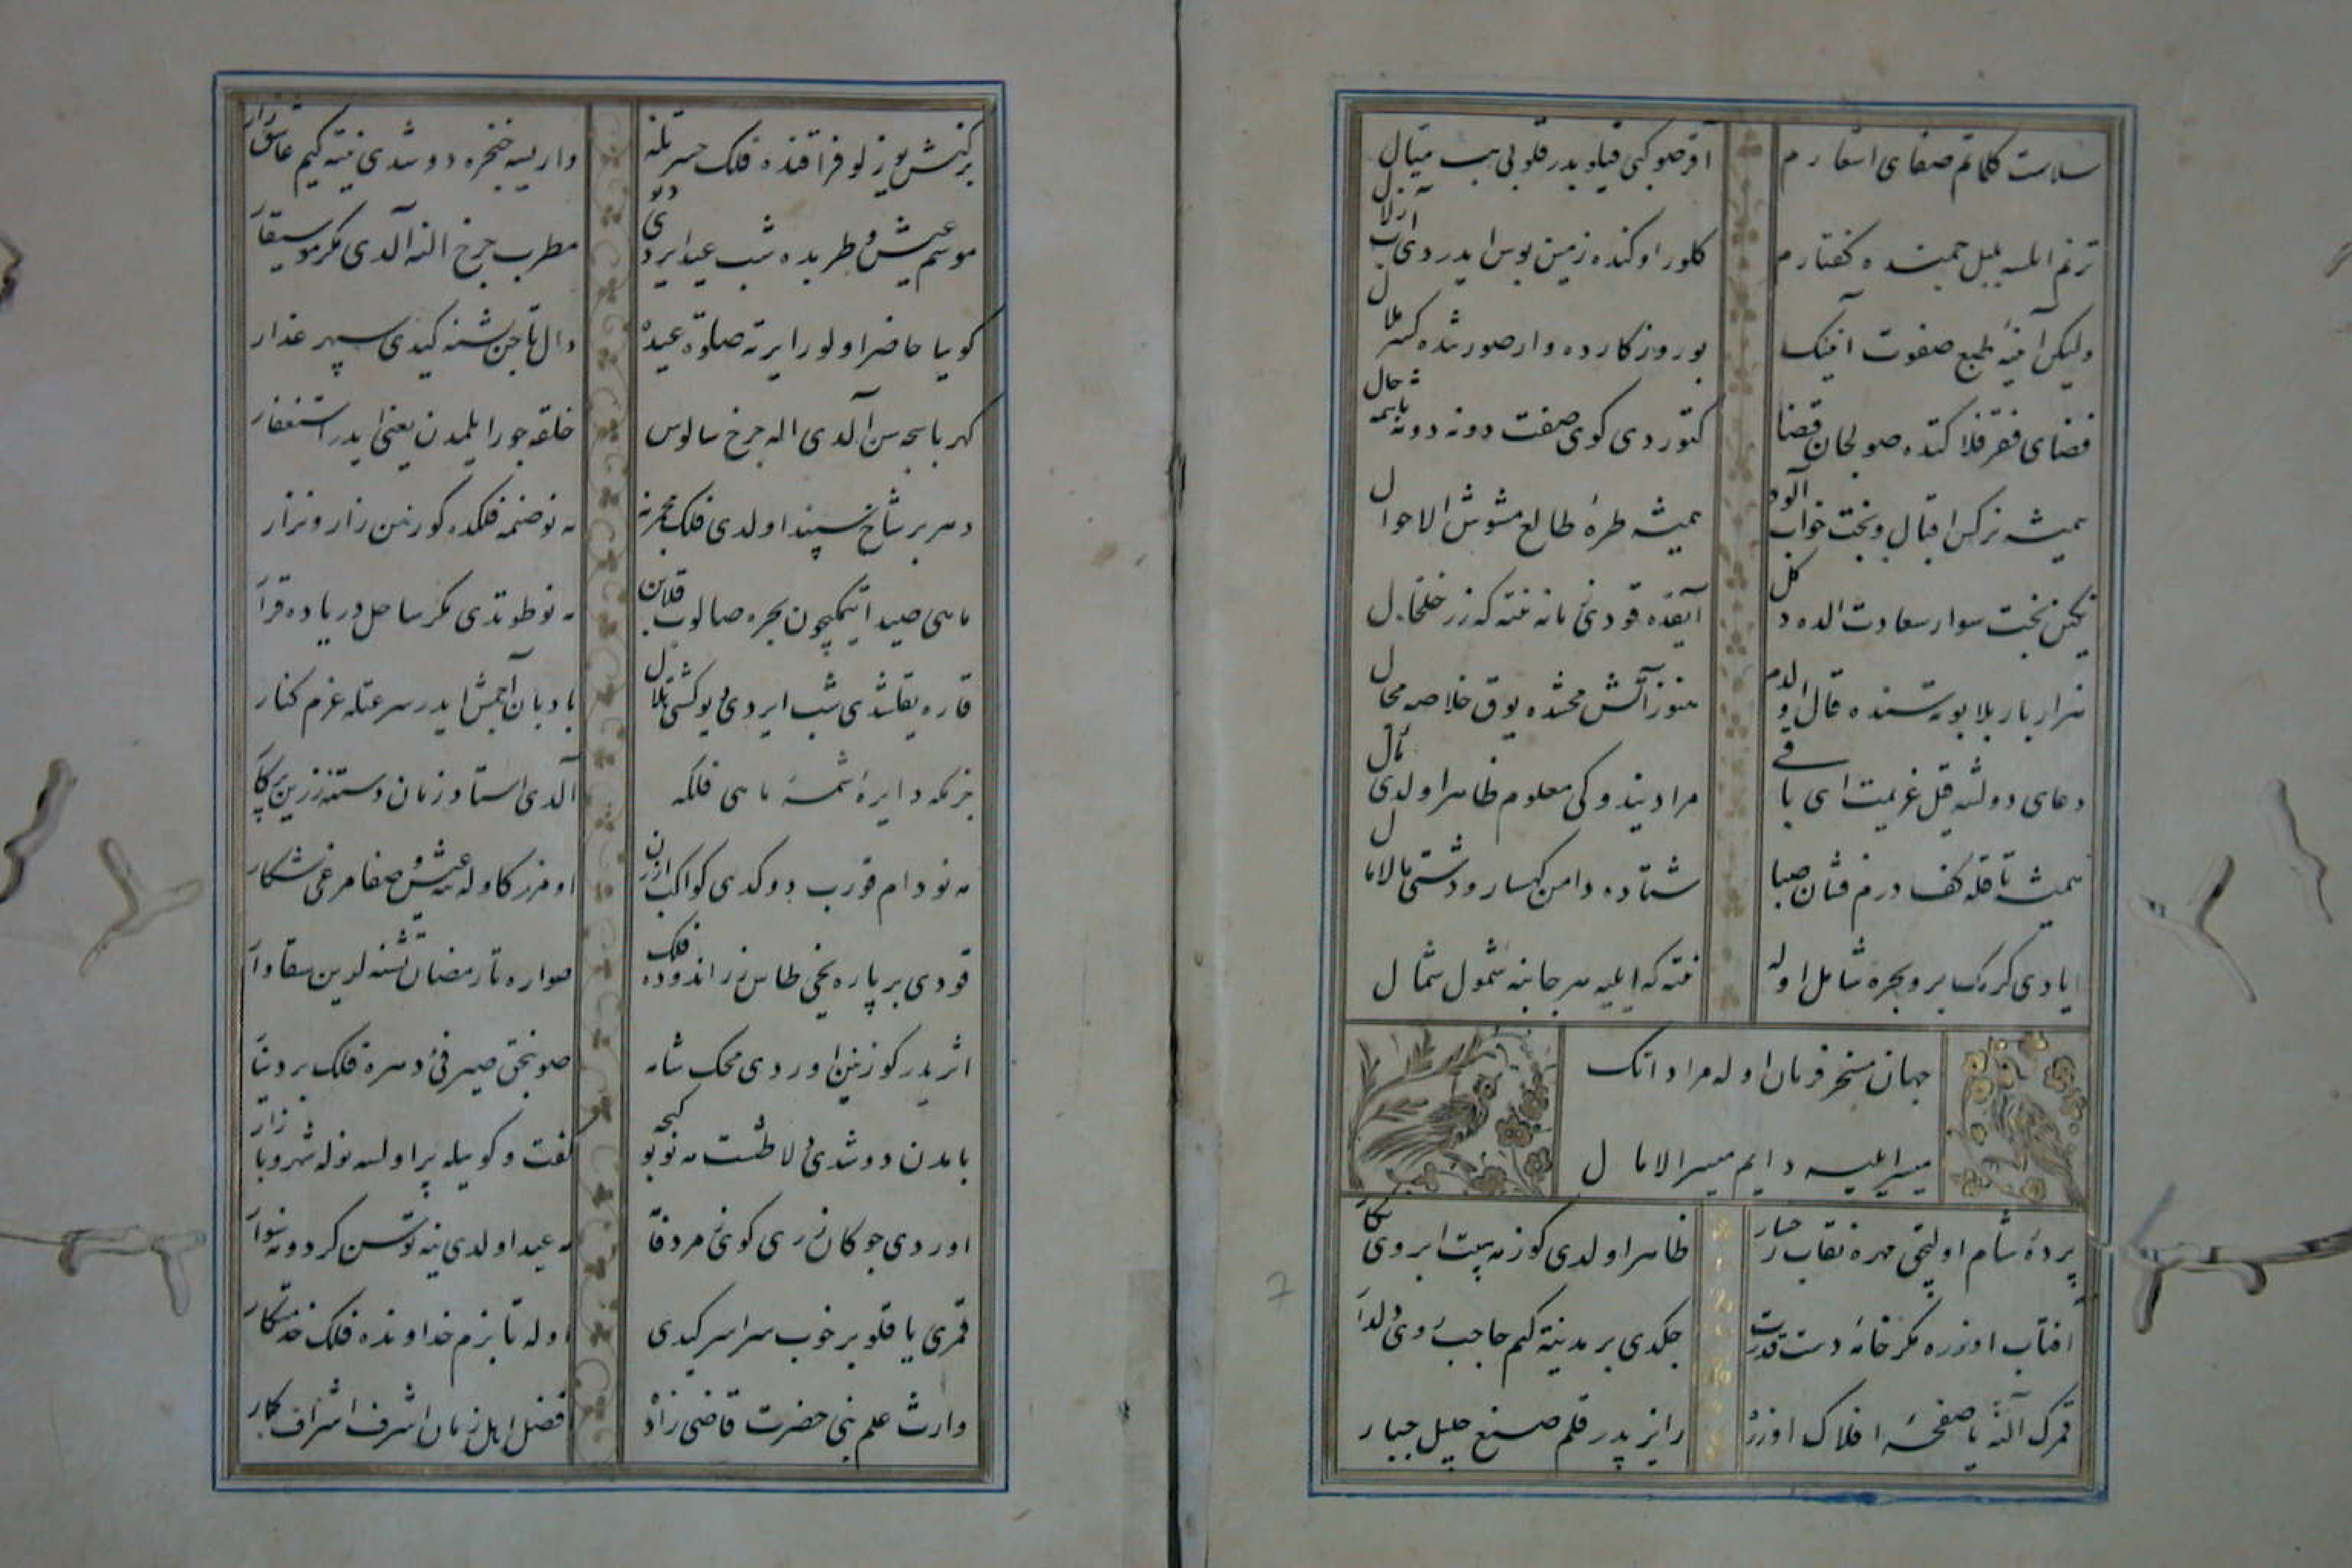 سلاست کلماتم صفای اشعارم
آقر صو کبی قیلوبدر قلوبی بی میال
ترنم ایلسه بلبل چمنده کفتارم
کلور اوکنده زمین بوس ایدر دی آب زلال
ولیکن آینهٔ طبع صفوت آئینک
بو روزکارده وار صورتنده کسر ملال
فضای فقر فلاکتده صولجان قضا
کتوردی کوی صفت دونه دونه باشمه حال
همیشه نرکس اقبال و بخت خواب آلود
همیشه طرهٔ طالع مشوش الاحوال
نکین بخت سوار سعادت الده دکل
آیقده قودنی یانه فتنه که زر خلخال
هزار بار بلا بوته سنده قال اولدم
هنوز آتش محنتده یوق خلاصه مجال
دعای دولته قیل عزیمت ای باقی
مرادیندوکی معلوم ظاهر اولدی مآل
همیشه تا قله کف درم فشان صبا
شتاده دامن کهسار و دشتی مالامال
ایادی کرمک بر و بحره شامل اوله
نته که ایلیه هر جانبه شمول شمال
جهان مسخر فرمان اوله مراد انک
میسر ایلیه دایم میسر الامال
پردهٔ شام اولیجق مهره نقاب رخسار
ظاهر اولدی کوزمه هیئت ابروی نکار
آفتاب اوزره مکر خامهٔ دست قدرت
چکدی بر مدینه کم حاجب روی دلدار
قمرک آلنه یا صفحهٔ افلاک اوزره
رایز یدر قلم صنع جلیل جبار
برکنش یوزلو فراقنده فلک حسرتله
واریسه خنجره دوشدی نیته کیم عاشق زار
موسم عیش و طربده شب عید ایردی دیو
مطرب چرخ النه آلدی مکر موسیقار
کوییا حاضر اولور ایرته صلوة عیده
دال تاجن باشنه کیدی سپهر غدار
کهربا سبحه سن آلدی اله چرخ سالوس
خلقه جور ایلمدن یعنی ایدر استغفار
دهر بر شاخ سپند اولدی فلک مجمرنه
مه نو ضنمه فلکده کورنن زار و نزار
ماهی صید ایتمکیچون بحره صالوب قلابن
مه نو طوتدی مکر ساحل دریاده قرار
قاره یقلاشدی شب ایردی دیو کشتی هلال
بادبان آچمش ایدر سرعتله عزم کنار
چزمکه دایرهٔ شمسهٔ ماهی فلکه
آلدی استاد زمان دستنه زرین پرکار
مه نو دام قوروب دوکدی کواکب ارزن
اومزرکاوله عیش و صفا مرغی شکار
قودی بر پاره یخی طاس زر اندوده فلک
صواره تا رمضان تشنه لرین سقاوار
اثریدر کورنن اوردی محک شانه
صو بنحق صیرفئ دهره فلک بر دینار
بامدن دوشدی لا طشت مه نو بو کیجه
کفت و کویله پر اولسه نوله شهر و بازار
اوردی چوکان زری کونی هر دفعه
مه عید اولدی ینه توسن کردونه سوار
قمری یا قلو بر خوب سراسر کیدی
اوله تا بزم خداونده فلک خدمتکار
وارث علم نبی حضرت قاضی زاده
افضل اهل زمان اشرف اشراف کبار